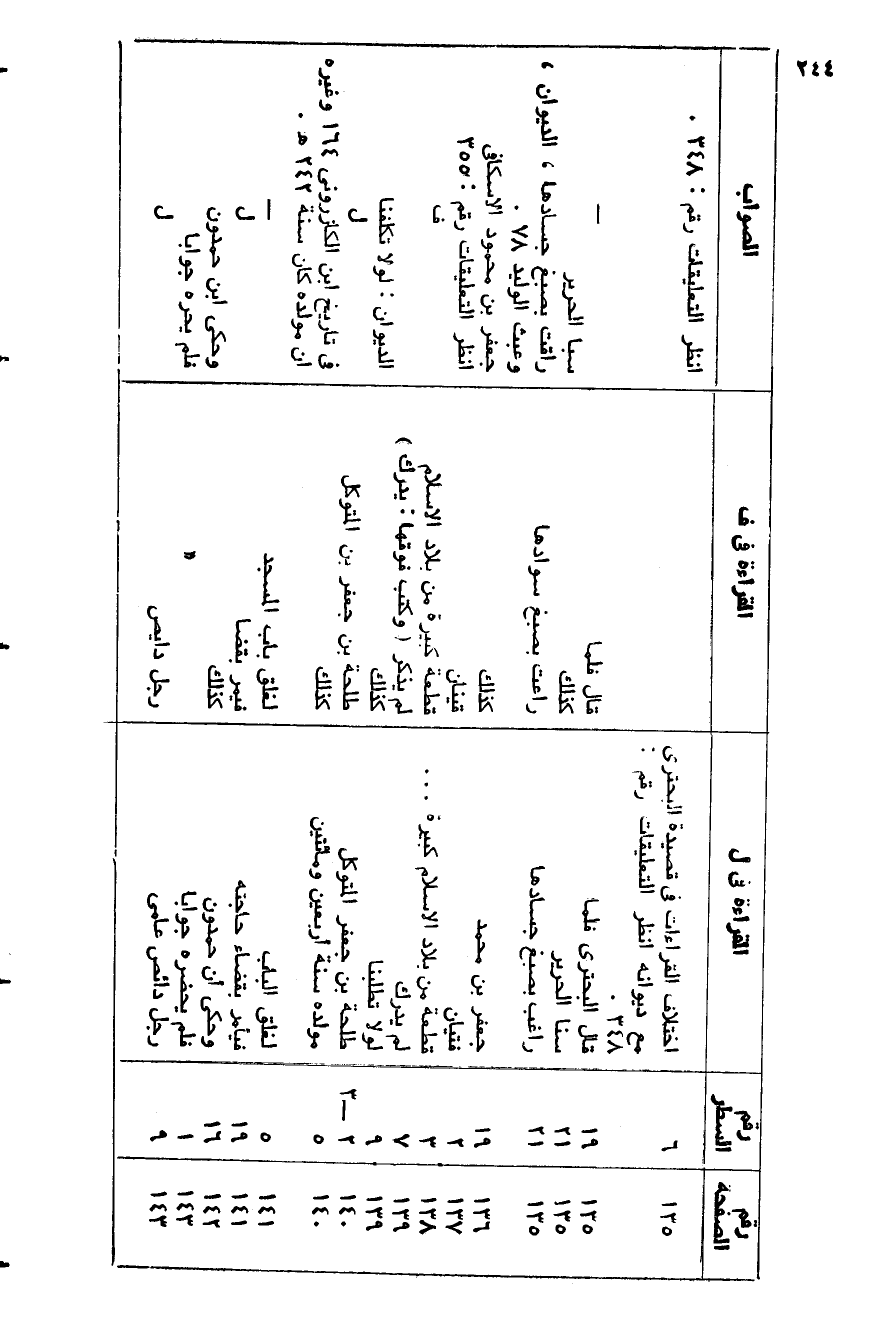 ٢٤٤
رقم الصفحة | رقم السطر | القراءة فى ل | القراءة فى ف | الصواب
١٣٥ | ٦ | اختلاف القراءات فى قصيدة البحترى
مع ديوانه انظر التعليقات رقم :
٣٤٨ . | | انظر التعليقات رقم : ٣٤٨ .
١٣٥ | ١٩ | قال البحترى فلما | قال فلما | —
١٣٥ | ٢١ | سنا الحرير | كذلك | سبا الحرير
١٣٥ | ٢١ | راغب بصبغ جسادها | راعت بصبغ سوادها | راقت بصبغ جسادها ، الديوان ،
وعبث الوليد ٧٨ .
١٣٦ | ١٩ | جعفر بن محمد | كذلك | جعفر بن محمود الاسكافى
١٣٧ | ٢ | فتيان | قيفان | انظر التعليقات رقم : ٣٥٥
١٣٨ | ٣ | قطعة من بلاد الاسلام كبيرة ... | قطعة كبيرة من بلاد الاسلام | ف
١٣٩ | ٧ | لم يدرك | لم يذكر ( وكتب فوقها : يدرك )
١٣٩ | ٩ | لولا تطلبنا | كذلك | الديوان : لولا تكلفنا
١٤٠ | ٢—٣ | طلحة بن جعفر المتوكل | طلحة بن جعفر بن المتوكل | ل
١٤٠ | ٥ | مولده سنة اربعين ومائتين | كذلك | فى تاريخ ابن الكازرونى ١٦٤ وغيره
أن مولده كان سنة ٢٤٢ هـ .
١٤١ | ٥ | لغلق الباب | لغلق باب المسجد | —
١٤١ | ١٩ | فيأمر بقضاء حاجته | فيمر بقضا | ل
١٤٢ | ١٦ | وحكى أن حمدون | كذلك | وحكى ابن حمدون
١٤٣ | ١ | فلم يحضره جوابا | » | فلم يحره جوابا
١٤٣ | ٩ | رجل دائص عامى | رجل دايص | ل